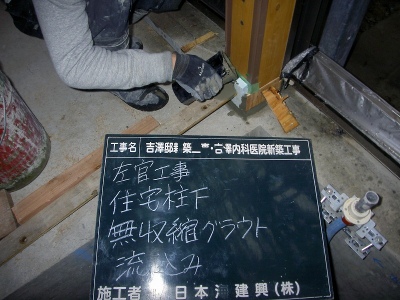 工事名 吉澤邸 築工事・吉澤内科医院新築工事
左官工事
住宅柱下
無収縮グラウト
流込み
施工者 日本海建興(株)